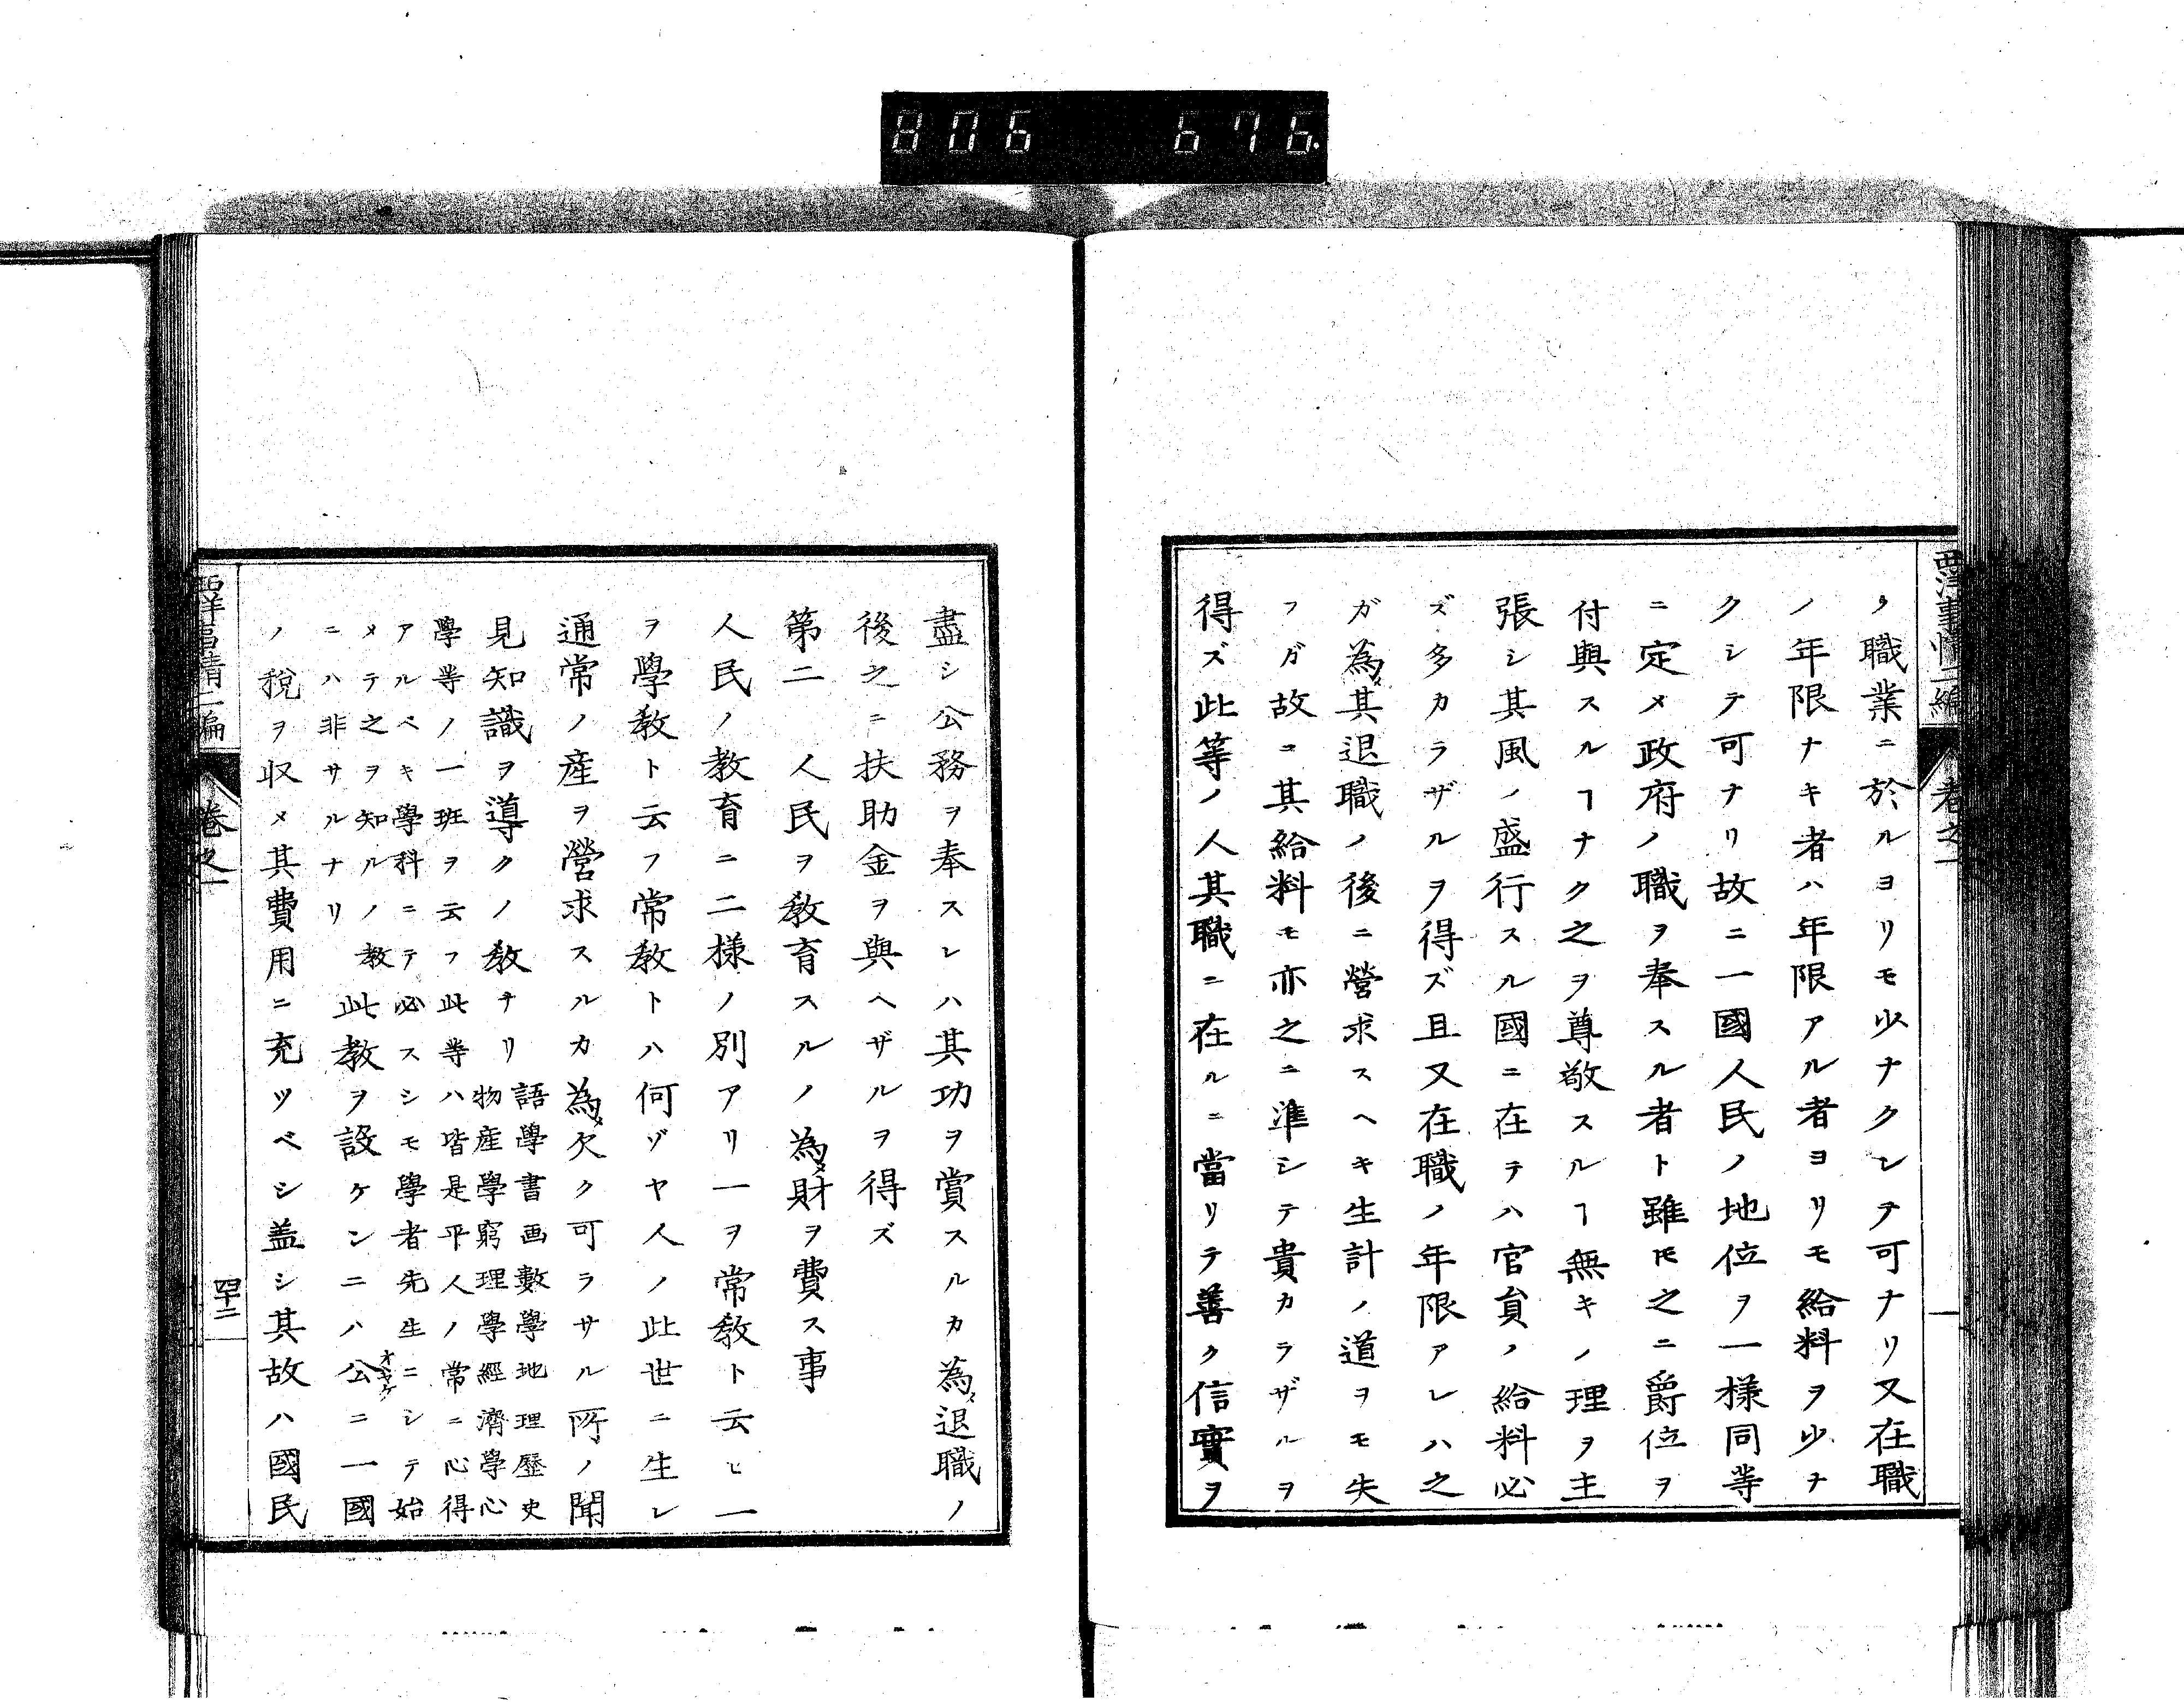 806 676.
西洋事情二編
巻之一
ク職業ニ於ルヨリモ少ナクシテ可ナリ又在職
ノ年限ナキ者ハ年限アル者ヨリモ給料ヲ少ナ
クシテ可ナリ故ニ一國人民ノ地位ヲ一様同等
ニ定メ政府ノ職ヲ奉スル者ト雖𪜈之ニ爵位ヲ
付與スルヿナク之ヲ尊敬スルヿ無キノ理ヲ主
張シ其風ノ盛行スル國ニ在テハ官貟ノ給料必
ズ多カラザルヲ得ズ且又在職ノ年限アレハ之
ガ為メ其退職ノ後ニ營求スヘキ生計ノ道ヲモ失
フガ故ニ其給料モ亦之ニ準シテ貴カラザルヲ
得ズ此等ノ人其職ニ在ルニ當リテ善ク信實ヲ
盡シ公務ヲ奉スレハ其功ヲ賞スルカ為メ退職ノ
後之ニ扶助金ヲ與ヘザルヲ得ズ
第二 人民ヲ敎育スルノ為メ財ヲ費ス事
人民ノ教育ニ二様ノ別アリ一ヲ常敎ト云ヒ一
ヲ學敎ト云フ常敎トハ何ゾヤ人ノ此世ニ生レ
通常ノ産ヲ營求スルカ為メ欠ク可ラサル所ノ聞
見知識ヲ導クノ敎ナリ
語學書画數學地理歴史
物産學窮理學經濟學心
學等ノ一班ヲ云フ此等ハ皆是平人ノ常ニ心得
アルベキ學科ニテ必スシモ學者先生ニシテ始
メテ之ヲ知ルノ教
ニハ非サルナリ
此教ヲ設ケンニハ公オホヤケニ一國
ノ税ヲ収メ其費用ニ充ツベシ盖シ其故ハ國民
西洋事情二編
巻之一
四十二